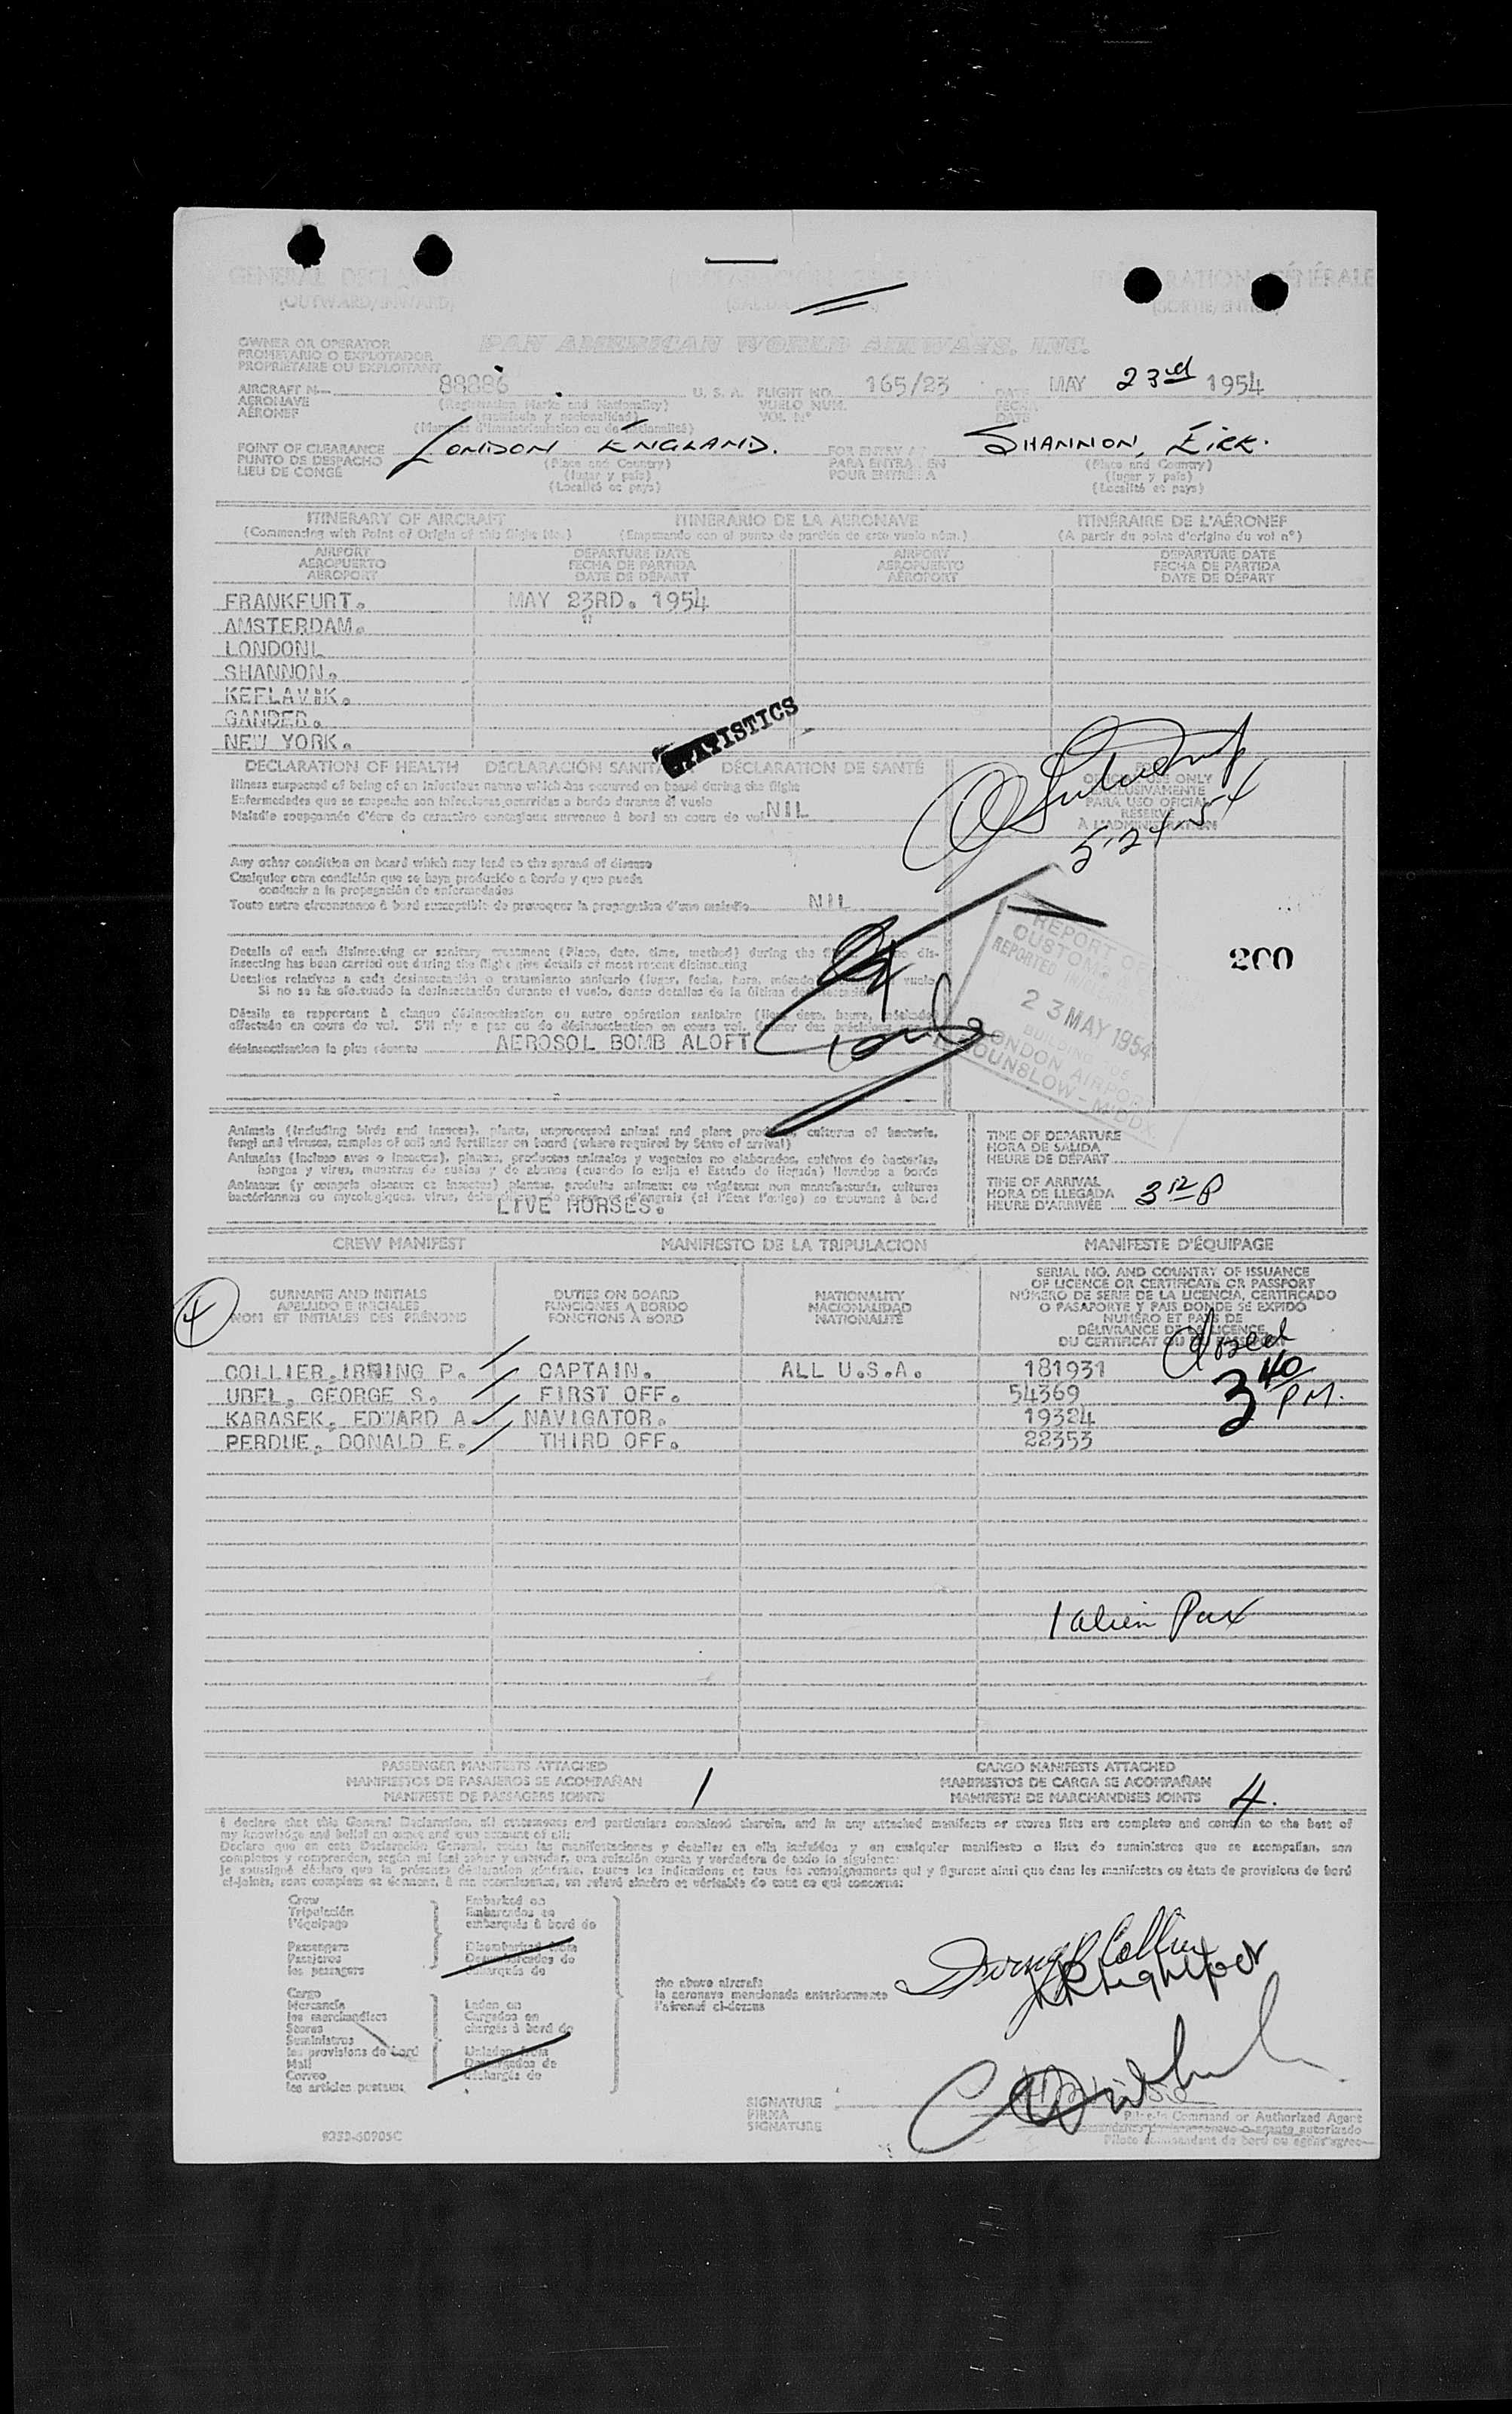 GENERAL DECL
(OUTWARD/INWARD)
OWNER OR OPERATOR
PROPIETARIO O EXPLOTADOR
PROPRIÉTAIRE OU EXPLOITANT
PAN AMERICAN WORLD AIRWAYS, INC.
AIRCRAFT N— 88886 U. S. A. FLIGHT NO. 165/23 DATE MAY 23rd 1954
AERONAVE (Registration Marks and Nationality) VUELO NUM. FECHA
AÉRONEF (matrícula y nacionalidad) VOL N° DATE
(Marques d'immatriculation ou de nationalité)
POINT OF CLEARANCE LONDON ENGLAND. FOR ENTRY SHANNON, EIRE.
PUNTO DE DESPACHO (Place and Country) PARA ENTRA EN (Place and Country)
LIEU DE CONGÉ (lugar y país) POUR ENTRÉE A (lugar y país)
(Localité et pays) (Localité et pays)
ITINERARY OF AIRCRAFT ITINERARIO DE LA AERONAVE ITINÉRAIRE DE L'AÉRONEF
(Commencing with Point of Origin of this flight No.) (Empezando con el punto de partida de este vuelo núm.) (A partir du point d'origine du vol n°)
AIRPORT DEPARTURE DATE AIRPORT DEPARTURE DATE
AEROPUERTO FECHA DE PARTIDA AEROPUERTO FECHA DE PARTIDA
AÉROPORT DATE DE DÉPART AÉROPORT DATE DE DÉPART
FRANKFURT. MAY 23RD. 1954
AMSTERDAM. "
LONDONL
SHANNON.
KEFLAVIK.
GANDER.
NEW YORK.
STATISTICS
DECLARATION OF HEALTH DECLARACIÓN SANITA DÉCLARATION DE SANTÉ
Illness suspected of being of an infectious nature which has occurred on board during the flight
Enfermedades que se sospecha son infecciosas, ocurridas a bordo durante el vuelo
Maladie soupçonnée d'être de caractère contagieux survenue à bord en cours de vol NIL
OFFICIAL USE ONLY
EXCLUSIVAMENTE
PARA USO OFICIAL
RESERVÉ
À L'ADMINISTRATION
5-24-54
Any other condition on board which may lead to the spread of disease
Cualquier otra condición que se haya producido a bordo y que pueda
conducir a la propagación de enfermedades
Toute autre circonstance à bord susceptible de provoquer la propagation d'une maladie NIL
Details of each disinsecting or sanitary treatment (Place, date, time, method) during the dis-
insecting has been carried out during the flight give details of most recent disinsecting
Detalles relativos a cada desinsectación o tratamiento sanitario (lugar, fecha, hora, método vuelo
Si no se ha efectuado la desinsectación durante el vuelo, dense detalles de la última desinsectación
Détails se rapportant à chaque désinsectisation ou autre opération sanitaire (lieu, date, heure, méthode)
effectuée en cours de vol. S'il n'y a pas eu de désinsectisation en cours vol, donner des précisions
désinsectisation la plus récente AEROSOL BOMB ALOFT
REPORT OF
CUSTOMS
REPORTED
23 MAY 1954
BUILDING
LONDON AIRPORT
HOUNSLOW - MIDDX.
200
Animals (including birds and insects), plants, unprocessed animal and plant products, cultures of bacteria,
fungi and viruses, samples of soil and fertilizer on board (where required by State of arrival)
Animales (incluso aves e insectos), plantas, productos animales y vegetales no elaborados, cultivos de bacterias,
hongos y virus, muestras de suelos y de abonos (cuando lo exija el Estado de llegada) llevados a bordo
Animaux (y compris oiseaux et insectes) plantes, produits animaux ou végétaux non manufacturés, cultures
bactériennes ou mycologiques, virus, d'engrais (si l'Etat l'exige) se trouvant à bord
LIVE HORSES.
TIME OF DEPARTURE
HORA DE SALIDA
HEURE DE DÉPART
TIME OF ARRIVAL
HORA DE LLEGADA
HEURE D'ARRIVÉE 3 12 P
CREW MANIFEST MANIFIESTO DE LA TRIPULACION MANIFESTE D'ÉQUIPAGE
4
SURNAME AND INITIALS DUTIES ON BOARD NATIONALITY
APELLIDO E INICIALES FUNCIONES A BORDO NACIONALIDAD
NOM ET INITIALES DES PRÉNOMS FONCTIONS À BORD NATIONALITÉ
SERIAL NO. AND COUNTRY OF ISSUANCE
OF LICENCE OR CERTIFICATE OR PASSPORT
NÚMERO DE SERIE DE LA LICENCIA, CERTIFICADO
O PASAPORTE Y PAIS DONDE SE EXPIDÓ
NUMÉRO ET PAYS DE
DÉLIVRANCE DE LICENCE,
DU CERTIFICAT OU
Closed
3 40 PM.
COLLIER, IRWING P. CAPTAIN. ALL U.S.A. 181931
UBEL, GEORGE S. FIRST OFF. 54369
KARASEK, EDWARD A. NAVIGATOR. 19324
PERDUE, DONALD E. THIRD OFF. 22353
1 alien Pax
PASSENGER MANIFESTS ATTACHED CARGO MANIFESTS ATTACHED
MANIFIESTOS DE PASAJEROS SE ACOMPAÑAN 1 MANIFIESTOS DE CARGA SE ACOMPAÑAN 4.
MANIFESTE DE PASSAGERS JOINTS MANIFESTE DE MARCHANDISES JOINTS
I declare that this General Declaration, all statements and particulars contained therein, and in any attached manifests or stores lists are complete and contain to the best of
my knowledge and belief an exact and true account of all:
Declaro que en esta Declaración General, todas las manifestaciones y detalles en ella incluídos y en cualquier manifiesto o lista de suministros que se acompañan, son
completos y comprenden, según mi leal saber y entender, una relación exacta y verdadera de todo lo siguiente:
Je soussigné déclare que la présente déclaration générale, toutes les indications et tous les renseignements qui y figurent ainsi que dans les manifestes ou états de provisions de bord
ci-joints, sont complets et donnent, à ma connaissance, un relevé sincère et véritable de tout ce qui concerne:
Crew Embarked on
Tripulación Embarcados en
l'équipage embarqués à bord de
Passengers Disembarked from
Pasajeros Desembarcados de
les passagers débarqués de
the above aircraft
la aeronave mencionada anteriormente
l'aéronef ci-dessus
Cargo
Mercancía Laden on
les marchandises Cargados en
Stores chargés à bord de
Suministros
les provisions de bord Unladen from
Mail Descargados de
Correo déchargés de
les articles postaux
Irving P Collier
SIGNATURE
FIRMA
SIGNATURE
Pilot-in Command or Authorized Agent
Comandante de la aeronave o agente autorizado
Pilote commandant de bord ou agent agréé
9353-60905C